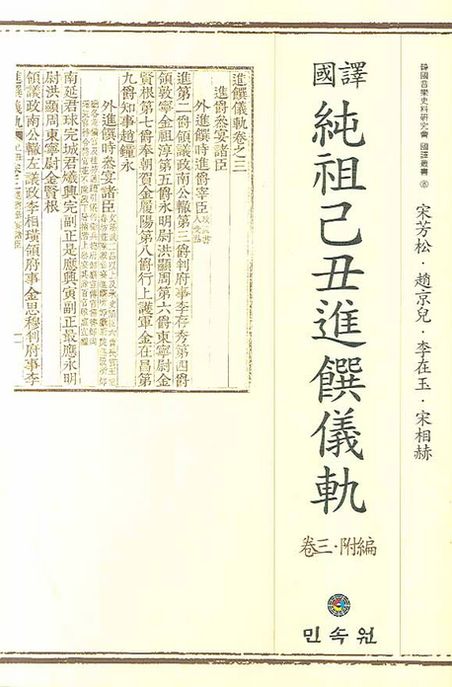 韓國音樂史料硏究會 國譯叢書
宋芳松·趙京兒·李在玉·宋相赫
國譯
純祖己丑進饌儀軌
卷三·附編
進饌儀軌卷之三
進爵參宴諸臣
外進饌時進爵宰臣
進第二爵領議政南公轍第三爵判府事李存秀第四爵
領敦寧金祖淳第五爵永明尉洪顯周第六爵東寧尉金
賢根第七爵奉朝賀金履陽第八爵行上護軍金在昌第
九爵知事趙鍾永
外進饌時參宴諸臣
南延君球完城君爔興完副正是應興寅副正最應永明
尉洪顯周東寧尉金賢根
領議政南公轍左議政李相璜領府事金思穆判府事李
進饌儀軌
민속원